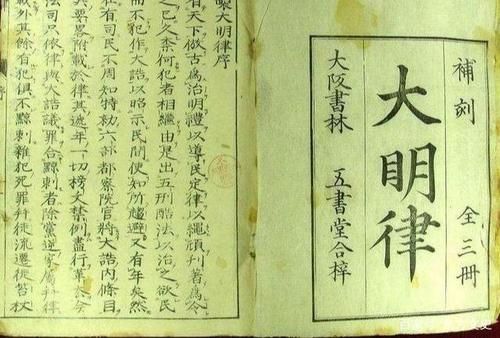 補刻 全三冊
大明律
大阪書林 五書堂合梓
製大明律序
有天下倣古為治明禮以導民定律以繩頑刊著為令
之已久奈何犯者相繼由是出五刑酷法以治之欲民
而不犯作大誥以昭示民間使知所趨避又有年矣然
在有司民不周知特勅六部都察院官將大誥內條目
其要畧附載於律其遞年一切榜文禁例盡行革去今
法司只依律與大誥議罪合黥刺者除黨逆家屬并律
載外其餘有犯俱不黥刺雜犯死罪并徒流遷徙笞杖
序